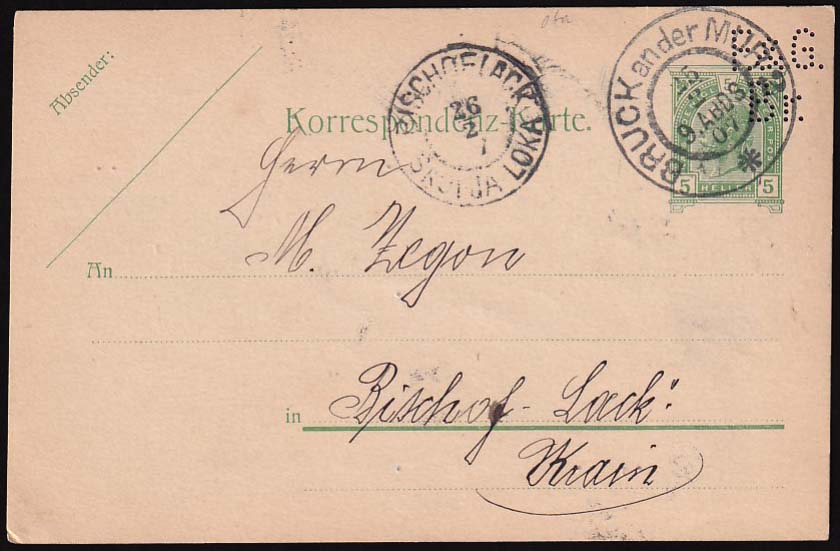 Absender:
Korrespondenz-Karte.
BRUCK an der MUR
25
2
9.ABDS
07
BISCHOFLACK
26
2
7
ŠKOFJA LOKA
5 HELLER 5
Herrn
M. Zegon
An
in Bischof-Lack.
Krain